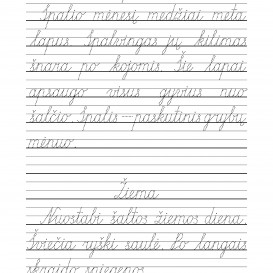 Spalio mėnesį medžiai meta
lapus. Spalvingas jų kilimas
šnara po kojomis. Šie lapai
apsaugo visus gyvius nuo
šalčio. Spalis – paskutinis grybų
mėnuo.
Žiema
Nuostabi šaltos žiemos diena.
Šviečia ryški saulė. Po langais
skraido sniegenos